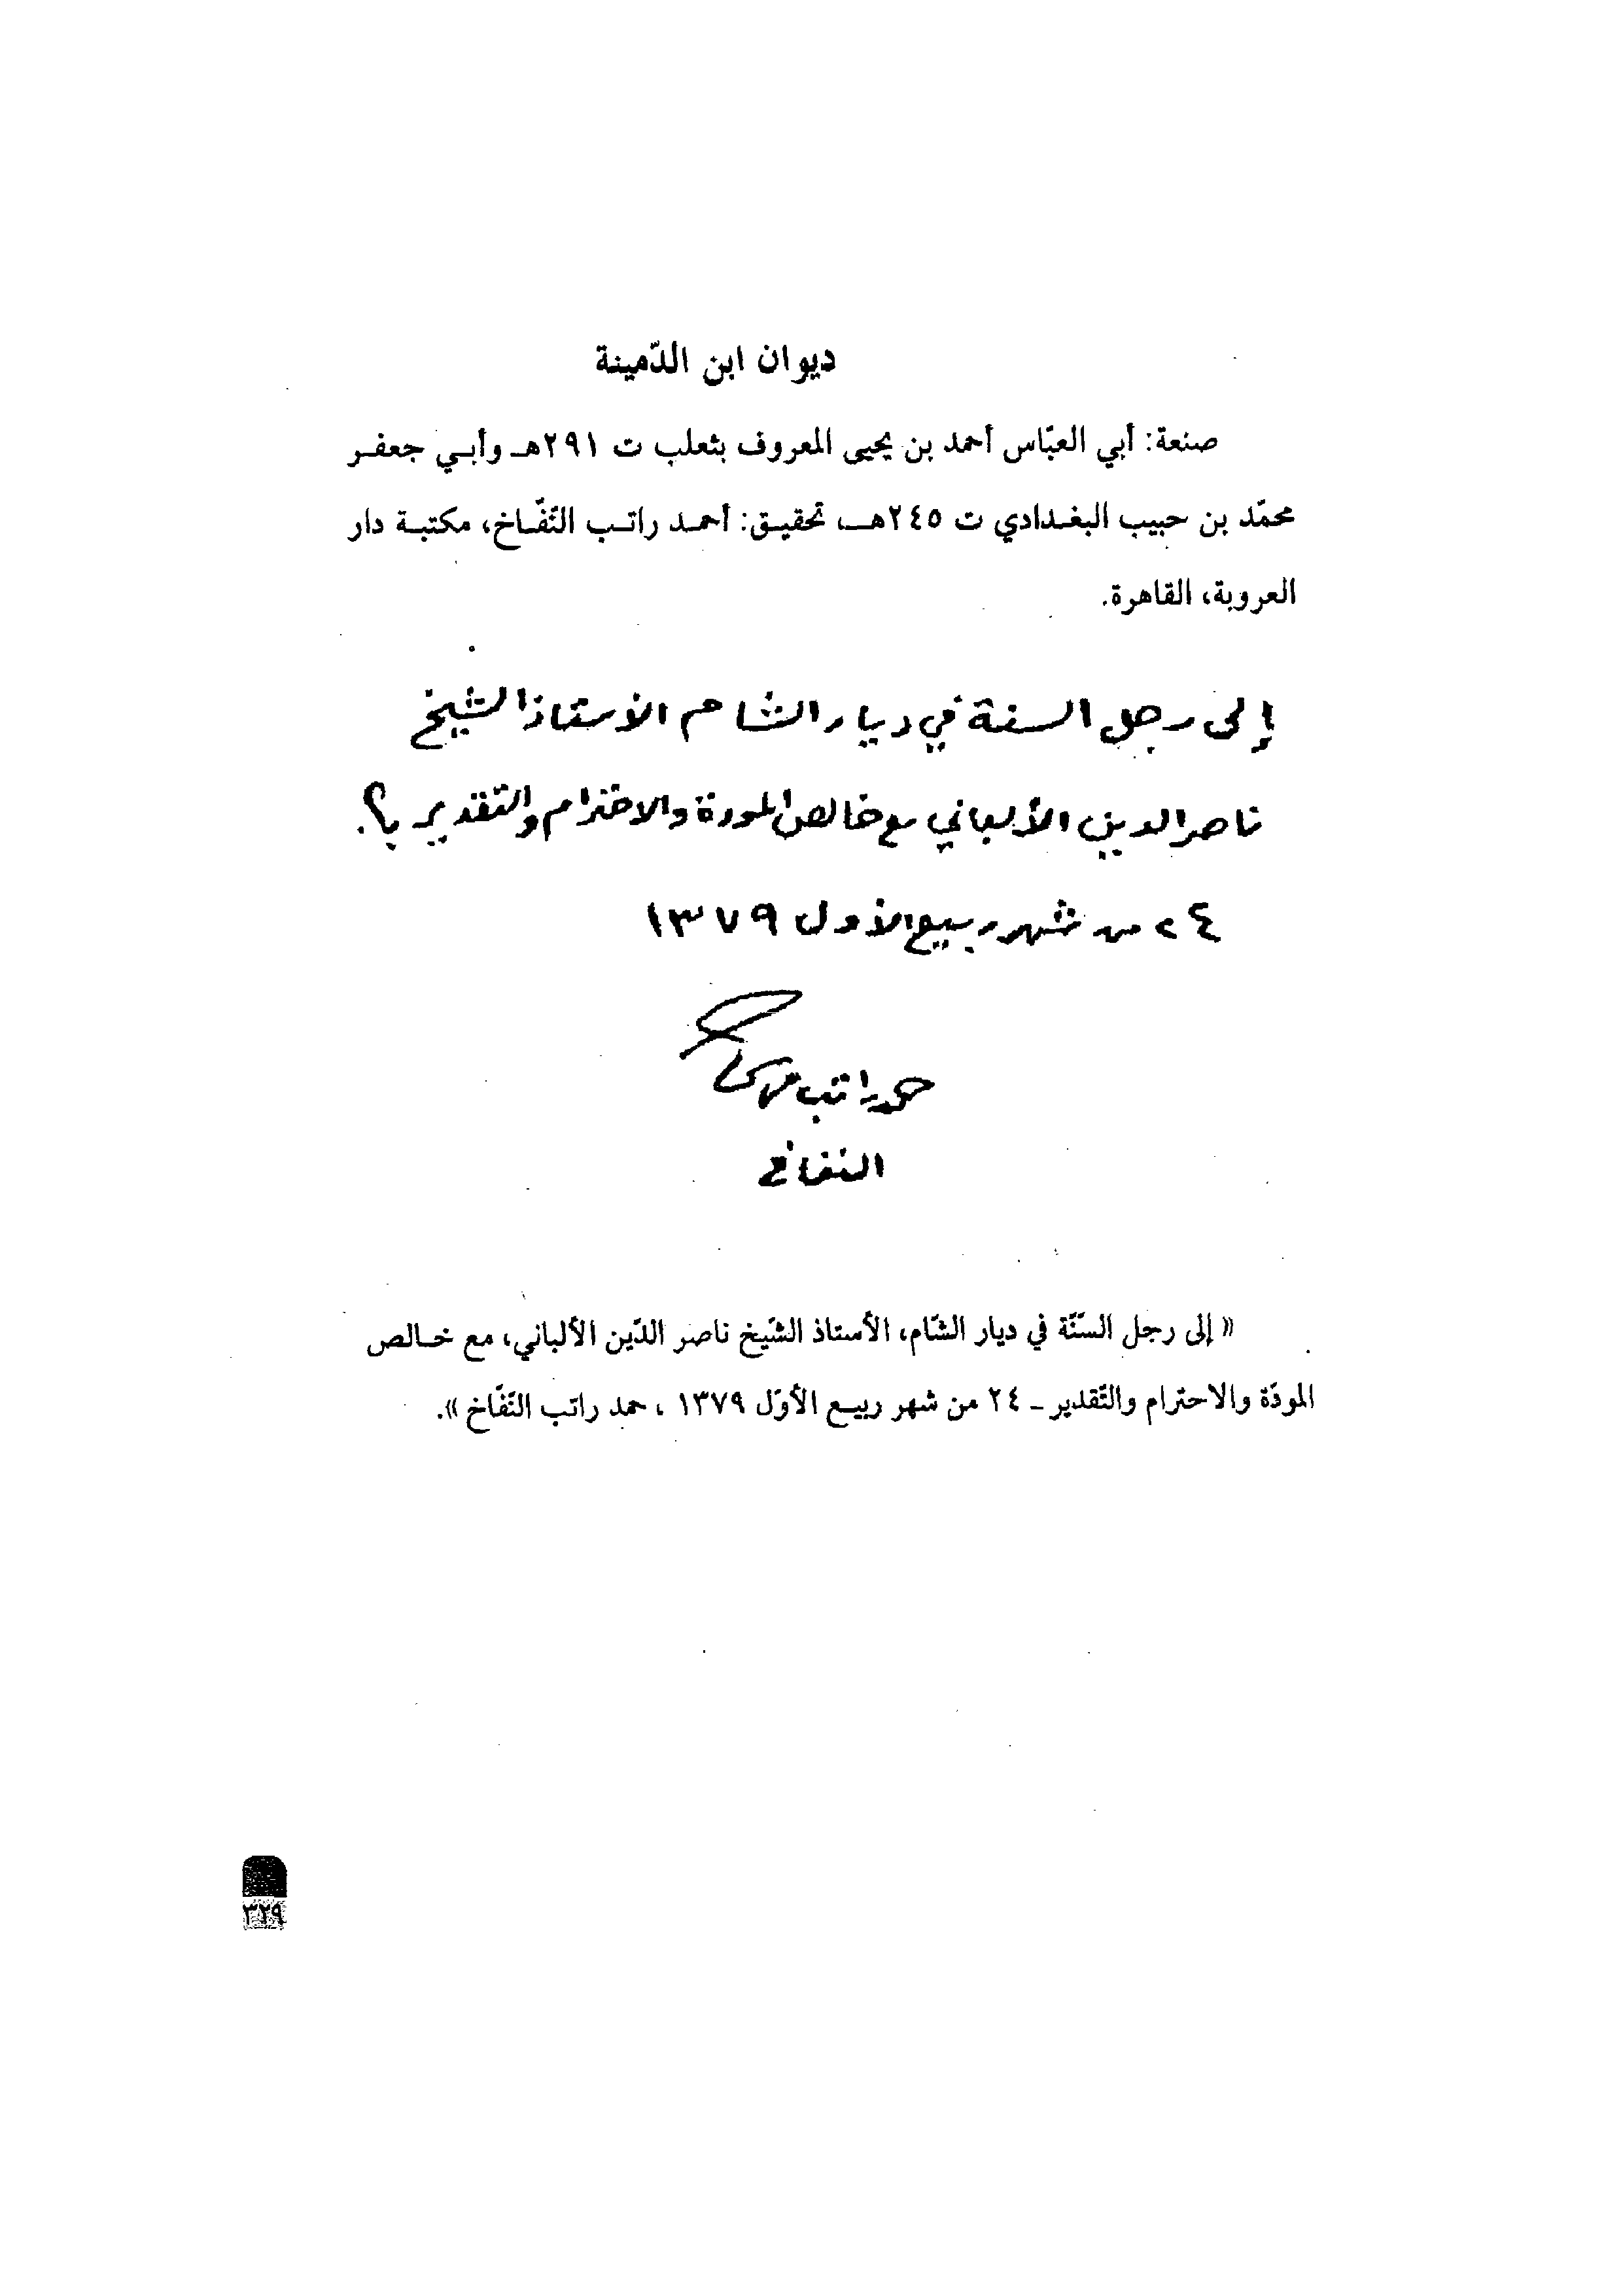 ديوان ابن الدّمينة
صنعة: أبي العبّاس أحمد بن يحيى المعروف بثعلب ت ٢٩١هـ وأبي جعفر
محمّد بن حبيب البغدادي ت ٢٤٥هـ، تحقيق: أحمد راتب النّفّاخ، مكتبة دار
العروبة، القاهرة.
إلى رجل السنة في ديار الشام الأستاذ الشيخ
ناصر الدين الألباني مع خالص المودة والاحترام والتقدير
٢٤ من شهر ربيع الأول ١٣٧٩
حمد راتب
النفاخ
« إلى رجل السّنّة في ديار الشّام، الأستاذ الشّيخ ناصر الدّين الألباني، مع خالص
المودّة والاحترام والتّقدير - ٢٤ من شهر ربيع الأوّل ١٣٧٩ ، حمد راتب النّفّاخ ».
٣٢٩